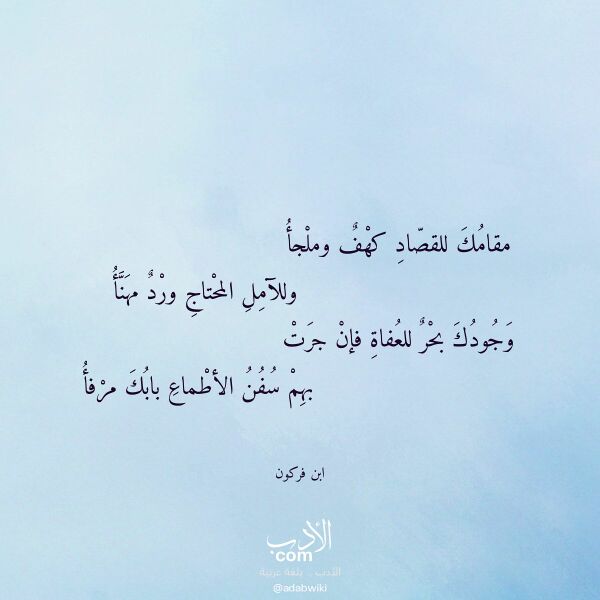 مقامُكَ للقصّادِ كهْفٌ وملْجأُ
وللآمِلِ المحْتاجِ ورْدٌ مهَنَّأُ
وَجُودُكَ بحْرٌ للعُفاةِ فإنْ جرَتْ
بهِمْ سُفُنُ الأطْماعِ بابُكَ مرْفأُ
ابن فركون
الأدب
com
الأدب .. بلغة عربية
@adabwiki